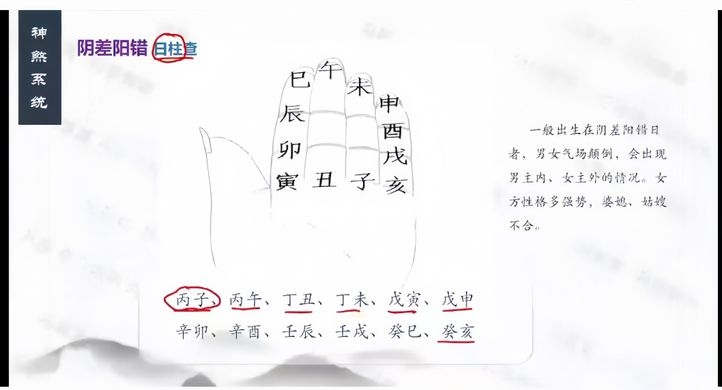 神煞系统
阴差阳错 日柱查
午
巳 未
申
辰 酉
卯 戌
寅 丑 子 亥
一般出生在阴差阳错日
者，男女气场颠倒，会出现
男主内、女主外的情况。女
方性格多强势，婆媳、姑嫂
不合。
丙子、丙午、丁丑、丁未、戊寅、戊申
辛卯、辛酉、壬辰、壬戌、癸巳、癸亥